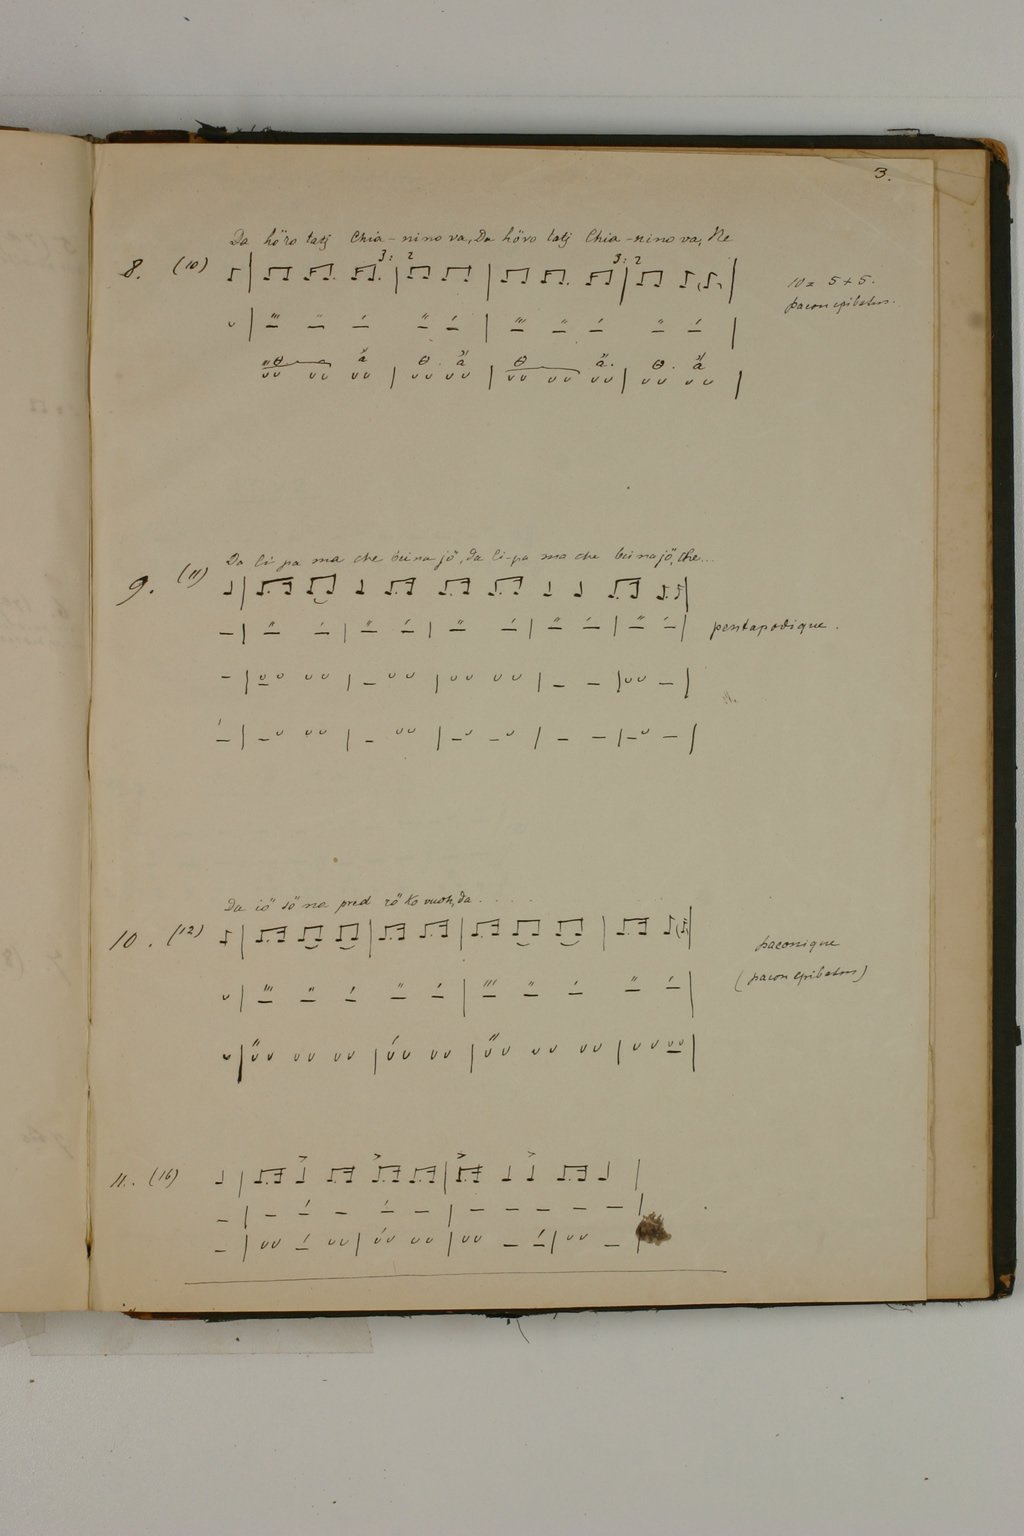 3.
Da höro tatj Chia - nino va, Da hövo tatj Chia - nino va, Ne
8. (10) 3:2 3:2
10 = 5 + 5.
paeon epibatus.
Da li pa ma che bui na jö, da li-pa ma che bui na jö, che...
9. (11)
pentapodique.
Da iö sö na pred rö ko vuoh, da . . . .
10. (12)
paeonique
(paeon epibatus)
11. (16)